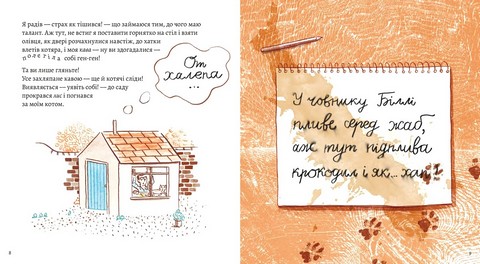 Я радів — страх як тішився! — що займаюся тим, до чого маю
талант. Аж тут, не встиг я поставити горнятко на стіл і взяти
олівця, як двері розчахнулися навстіж, до хатки
влетів котяра, і моя кава — ну ви здогадалися —
полетіла собі ген-ген!
Та ви лише гляньте!
Усе заляпане кавою — ще й котячі сліди!
Виявляється — уявіть собі! — до саду
прокрався лис і погнався
за моїм котом.
От
халепа
...
У човнику Біллі
пливе серед жаб,
аж тут підплива
крокодил і як... хап
8
9